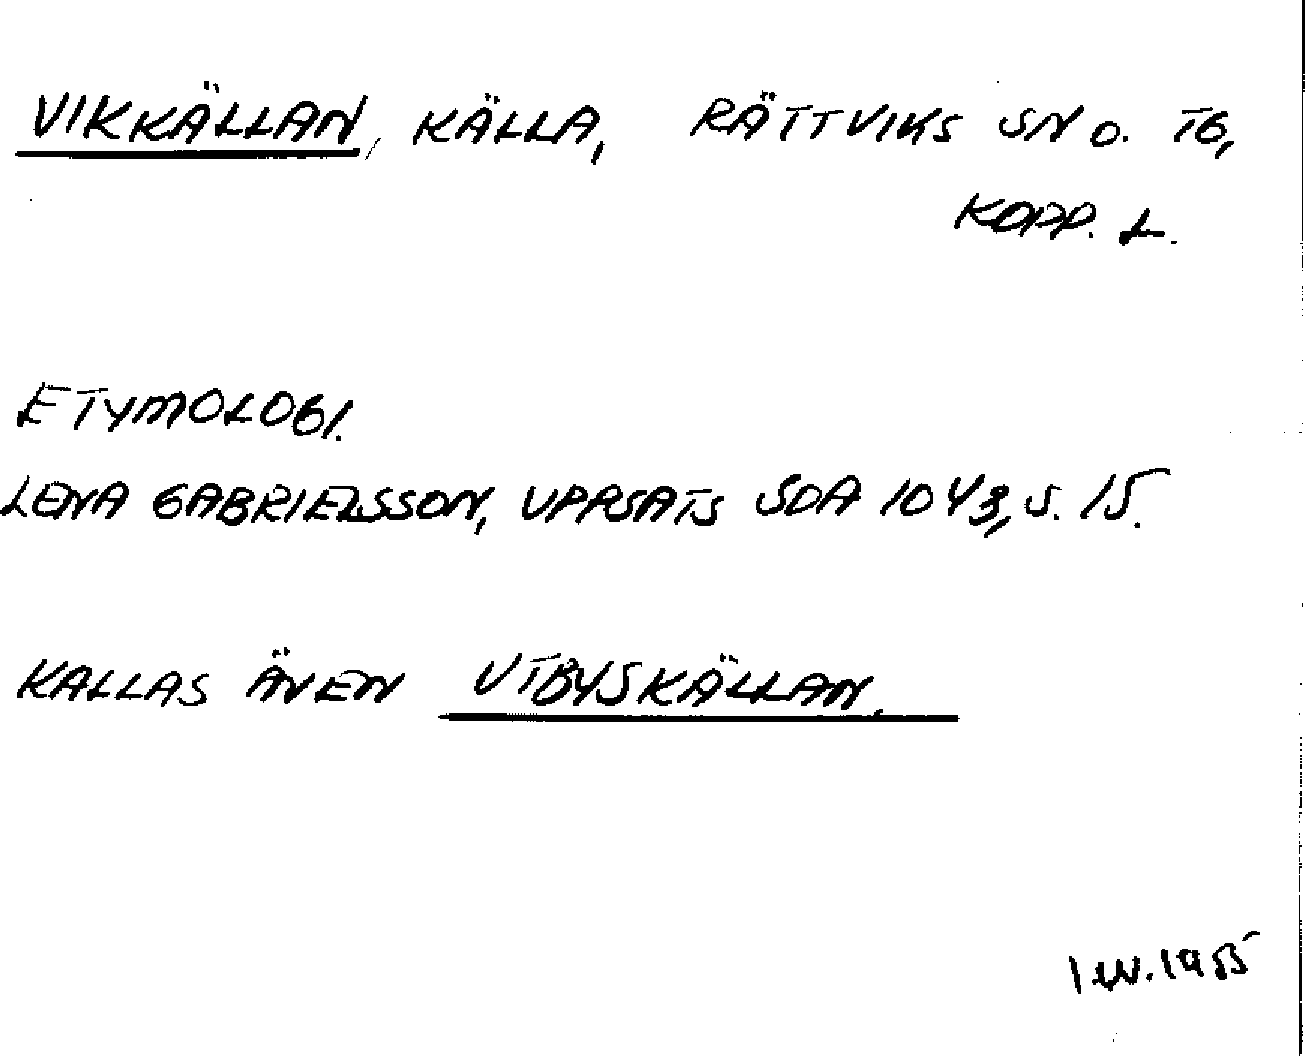 VIKKÄLLAN, KÄLLA, RÄTTVIKS SN O. TG,
KOPP. L.
ETYMOLOGI.
LENA GABRIELSSON, UPPSATS SOA 1043, S. 15.
KALLAS ÄVEN UTBYSKÄLLAN.